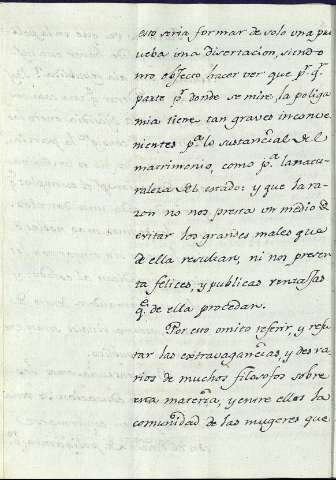 esto seria formar de solo una pru
ueba una disertacion, siendo
nro. objecto hacer ver que pr. qe.
parte pr. donde se mire, la poliga
mia tiene tan graves inconve
nientes pa. lo sustancial del
matrimonio, como pa. la natu
raleza del estado: y que la ra
zon no nos presta un medio de
evitar los grandes males que
de ella resultan, ni nos presen
ta felices, y publicas ventajas
qe. de ella procedan.
Por esto omito referir, y refu
tar las extravagancias, y desva
rios de muchos filosofos sobre
esta materia, y entre ellos la
comunidad de las mugeres que